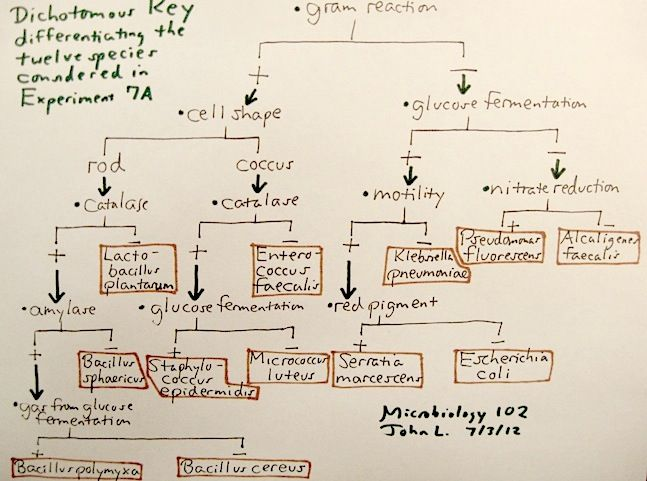 Dichotomous Key
differentiating the
twelve species
considered in
Experiment 7A
• gram reaction
+
−
• cell shape
• glucose fermentation
rod
coccus
+
−
• Catalase
• catalase
• motility
• nitrate reduction
+
−
+
−
+
−
+
−
Lacto-
bacillus
plantarum
Entero-
coccus
faecalis
Klebsiella
pneumoniae
Pseudomonas
fluorescens
Alcaligenes
faecalis
• amylase
• glucose fermentation
• red pigment
+
−
+
−
+
−
Bacillus
sphaericus
Staphylo-
coccus
epidermidis
Micrococcus
luteus
Serratia
marcescens
Escherichia
coli
• gas from glucose
fermentation
+
−
Bacillus polymyxa
Bacillus cereus
Microbiology 102
John L. 7/3/12